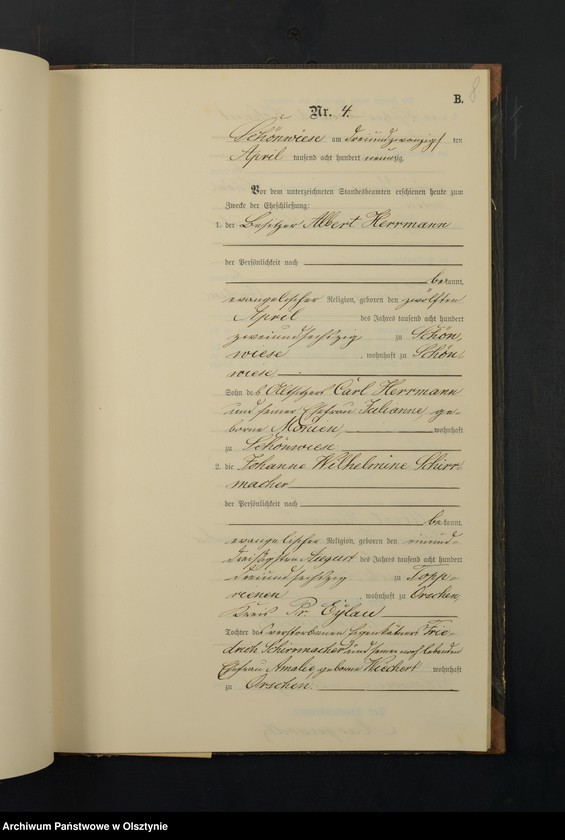 8
B.
Nr. 4.
Schönwiese am dreiundzwanzigsten
April tausend acht hundert neunzig.
Vor dem unterzeichneten Standesbeamten erschienen heute zum
Zwecke der Eheschließung:
1. der Besitzer Albert Herrmann
der Persönlichkeit nach
bekannt,
evangelischer Religion, geboren den zwölften
April des Jahres tausend acht hundert
zweiundsechszig zu Schön
wiese, wohnhaft zu Schön
wiese
Sohn des Altsitzers Carl Herrmann
und seiner Ehefrau Julianne, ge-
borne Monien, wohnhaft
zu Schönwiese
2. die Johanne Wilhelmine Schirr
macher
der Persönlichkeit nach
bekannt,
evangelischer Religion, geboren den einund-
dreißigsten August des Jahres tausend acht hundert
dreiundsechszig zu Topp-
rienen, wohnhaft zu Orschen,
Kreis Pr. Eylau
Tochter des verstorbenen Eigenkäthners Frie-
drich Schirrmacher und seiner noch lebenden
Ehefrau Amalie, geborne Wiechert wohnhaft
zu Orschen
Archiwum Państwowe w Olsztynie